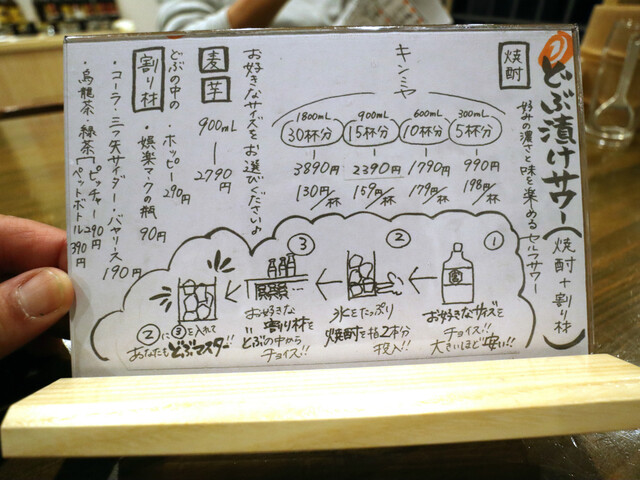 どぶ漬けサワー(焼酎+割り材)
好みの濃さと味を楽めるセルフサワー
焼酎
キンミヤ
300mL 5杯分 990円 198円/杯
600mL 10杯分 1790円 179円/杯
900mL 15杯分 2390円 159円/杯
1800mL 30杯分 3890円 130円/杯
お好きなサイズをお選びください♪
麦 芋
900mL ー 2790円
割り材
どぶの中の
・ホッピー 290円
・娯楽マークの瓶 90円
・コーラ・三ツ矢サイダー・バヤリース 190円
・烏龍茶・緑茶「ピッチャー290円
ペットボトル390円
①
お好きなサイズを
チョイス!!
大きいほど安い!!
②
氷をたっぷり
焼酎を指2本分
投入!!
③
お好きな
割り材を
どぶの中から
チョイス!!
②に③を入れて
あなたもどぶマスター!!